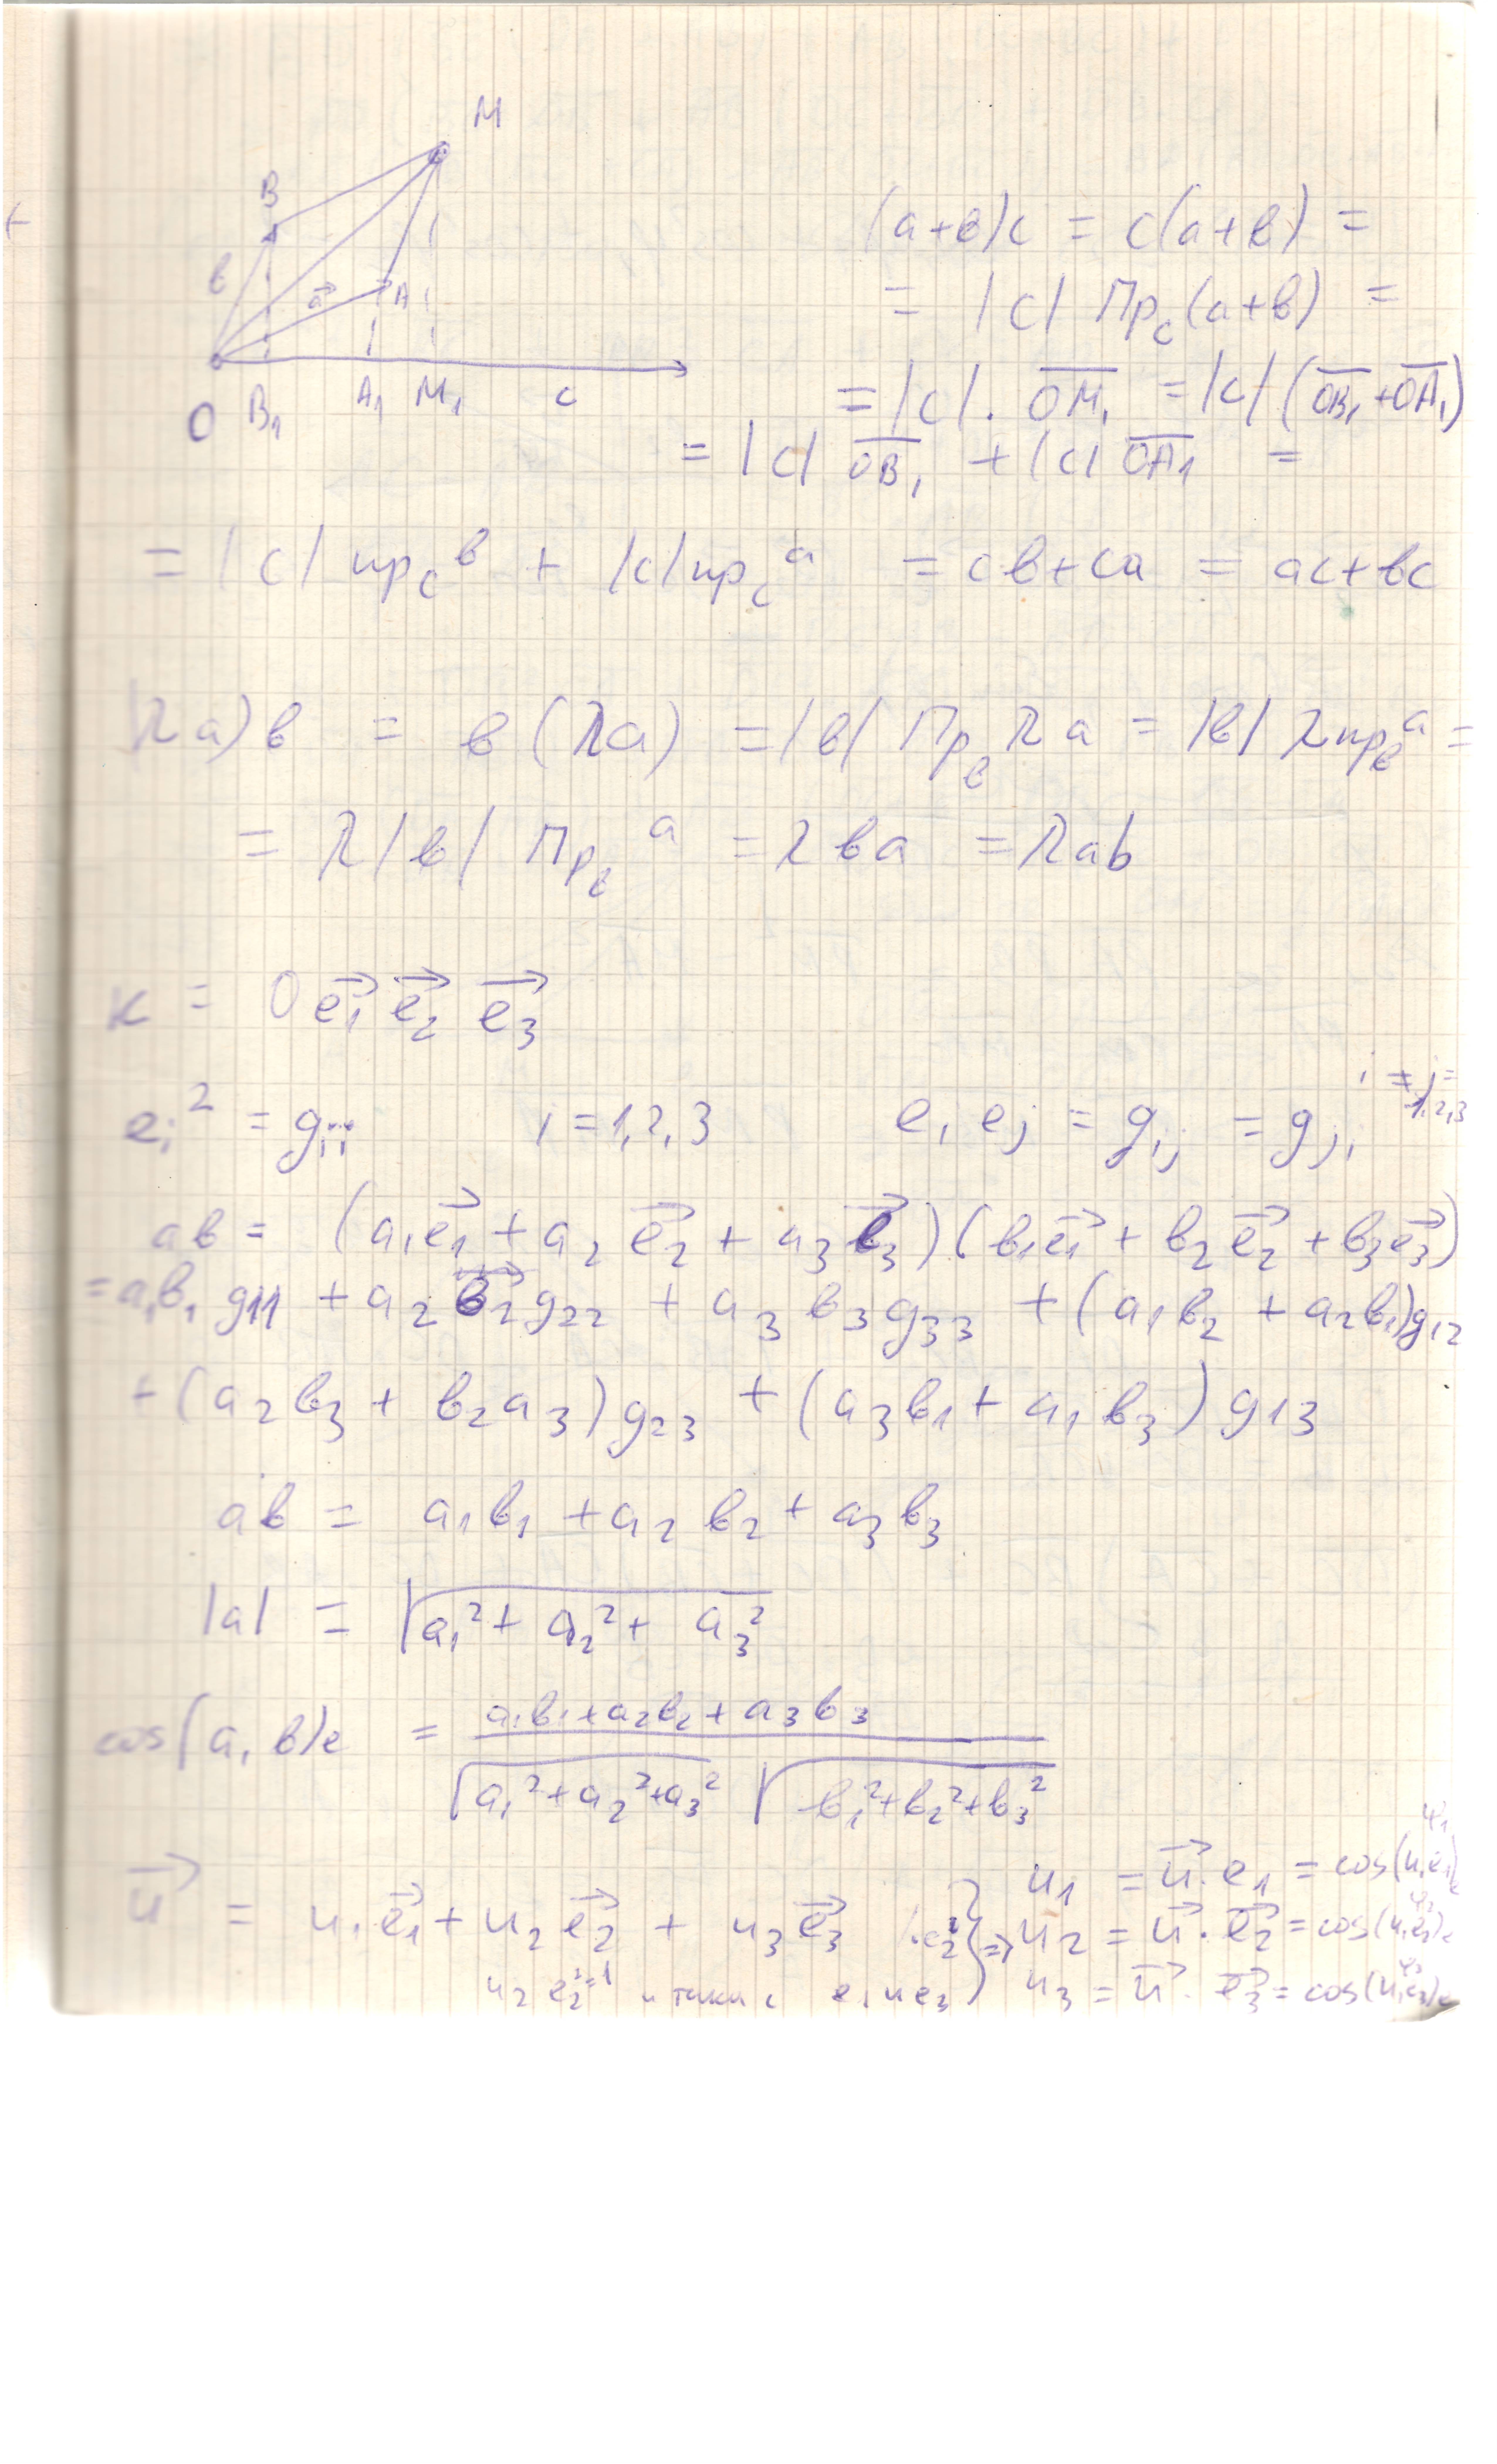 M
B
в
a⃗ A
O B₁ A₁ M₁ c
(a+в)c = c(a+в) =
= |c| Прc(a+в) =
= |c| · OM₁ = |c| (OB₁ + OA₁)
= |c| OB₁ + |c| OA₁ =
= |c| прc в + |c| прc a = cв + ca = ac + вc
(λa)в = в(λa) = |в| Прв λa = |в| λ прв a =
= λ|в| Прв a = λвa = λab
K = O e⃗₁ e⃗₂ e⃗₃
eᵢ² = gᵢᵢ i = 1,2,3 eᵢ eⱼ = gᵢⱼ = gⱼᵢ i ≠ j = 1,2,3
aв = (a₁e⃗₁ + a₂e⃗₂ + a₃e⃗₃)(в₁e⃗₁ + в₂e⃗₂ + в₃e⃗₃)
= a₁в₁ g₁₁ + a₂в₂g₂₂ + a₃в₃g₃₃ + (a₁в₂ + a₂в₁)g₁₂
+ (a₂в₃ + в₂a₃)g₂₃ + (a₃в₁ + a₁в₃)g₁₃
aв = a₁в₁ + a₂в₂ + a₃в₃
|a| = √(a₁² + a₂² + a₃²)
cos(a, в)e = (a₁в₁ + a₂в₂ + a₃в₃) / (√(a₁² + a₂² + a₃²) √(в₁² + в₂² + в₃²))
u⃗ = u₁e⃗₁ + u₂e⃗₂ + u₃e⃗₃ ·e₂ } ⇒
u₂ e₂²=1 и e₃
u₁ = u⃗ · e₁ = cos(u,e₁)e φ₁
u₂ = u⃗ · e⃗₂ = cos(u,e₂)e φ₂
u₃ = u⃗ · e⃗₃ = cos(u,e₃)e φ₃